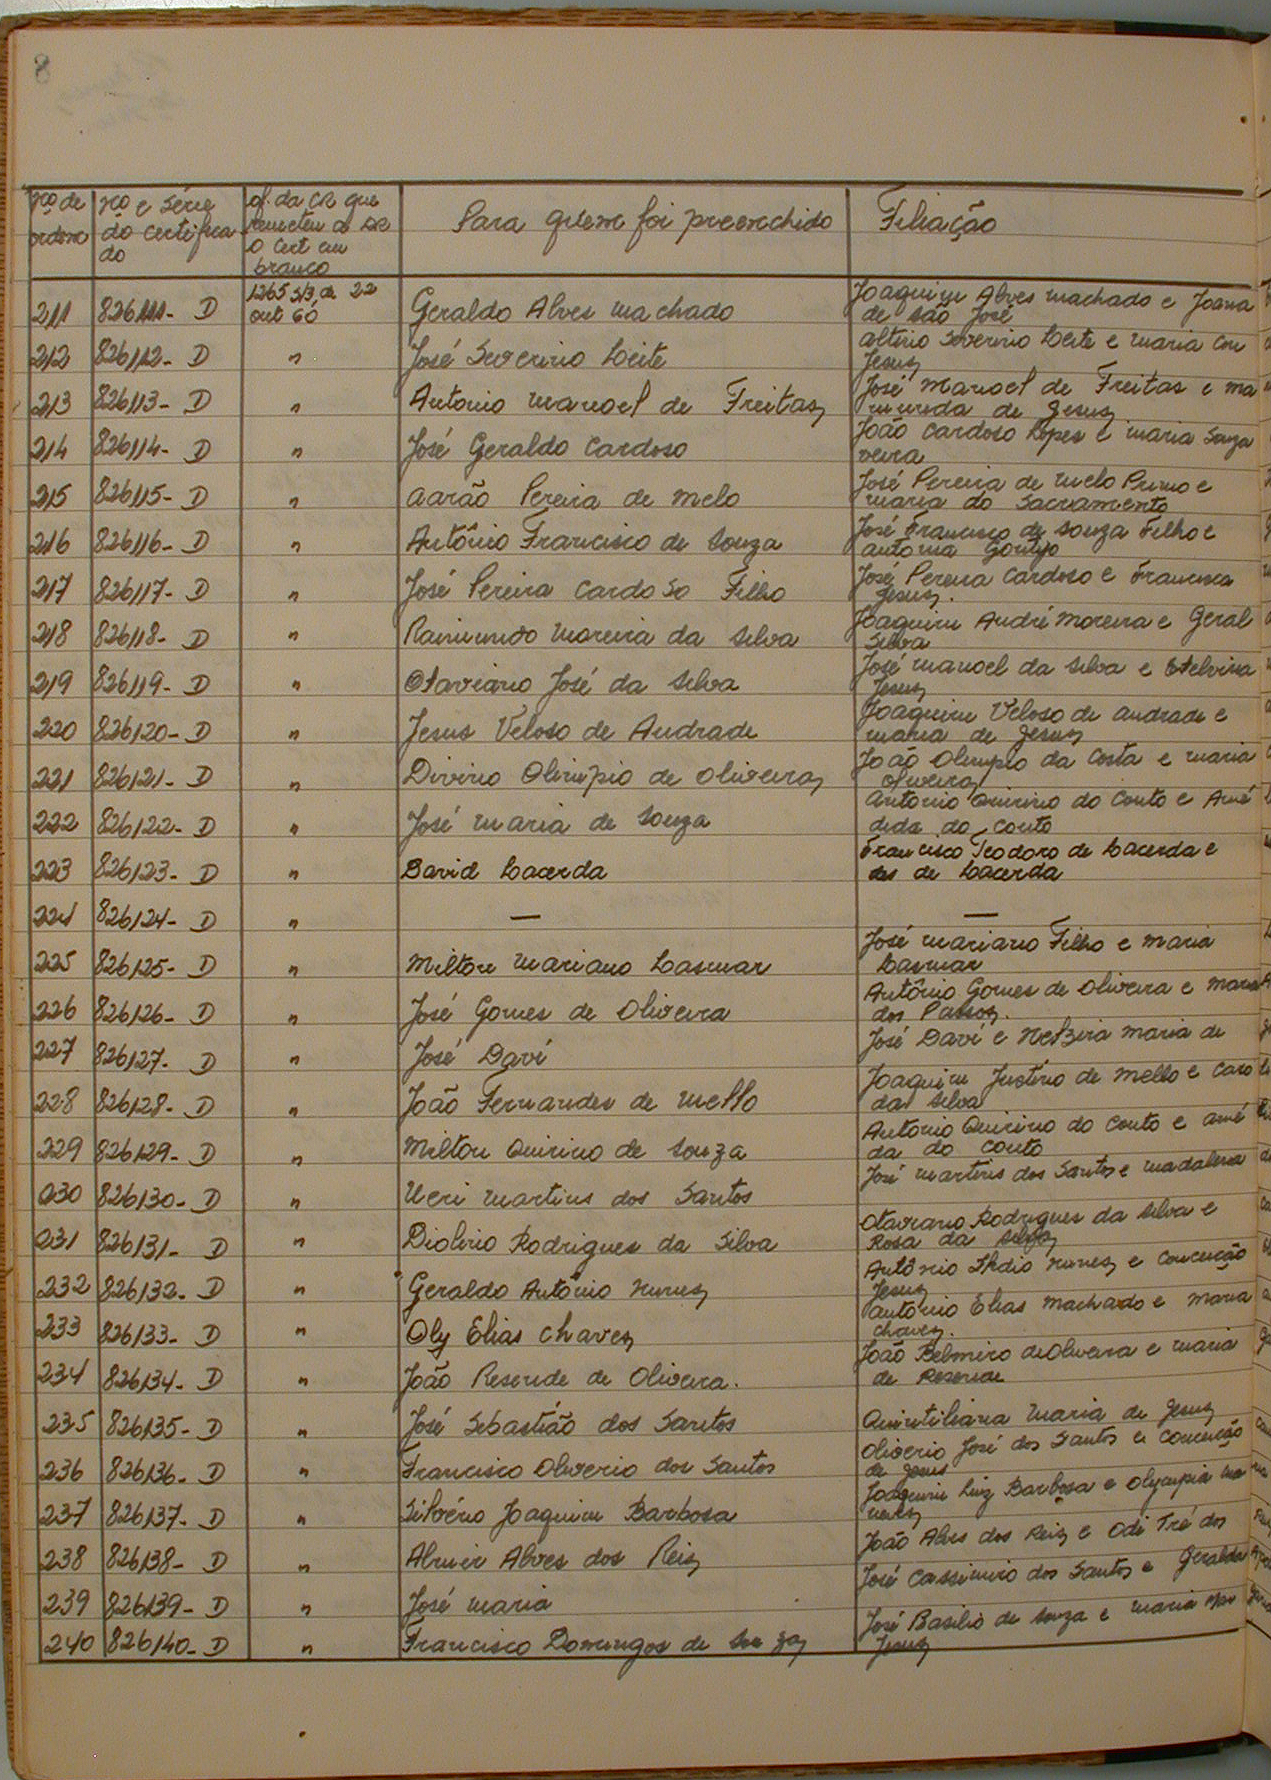 8
nº de ordem
nº e série do certificado
of. da CR que remeteu a DR o Cert em branco
Para quem foi preenchido
Filiação
211 826111- D 1265 S/3, de 22 out 60 Geraldo Alves Machado Joaquim Alves Machado e Joana
de São José
212 826112- D " José Severino Leite Altino Severino Leite e Maria Con
Jesus
213 826113- D " Antonio Manoel de Freitas José Manoel de Freitas e Ma
de Jesus
214 826114- D " José Geraldo Cardoso João Cardoso Lopes e Maria Souza
veira
215 826115- D " Aarão Pereira de Melo José Pereira de Melo Primo e
Maria do Sacramento
216 826116- D " Antônio Francisco de Souza José Francisco de Souza Filho e
Antônia Gontijo
217 826117- D " José Pereira Cardoso Filho José Pereira Cardoso e Francisca
Jesus.
218 826118- D " Raimundo Moreira da Silva Joaquim André Moreira e Geral
Silva
219 826119- D " Otaviano José da Silva José Manoel da Silva e Etelvina
Jesus
220 826120- D " Jesus Veloso de Andrade Joaquim Veloso de Andrade e
Maria de Jesus
221 826121- D " Divino Olimpio de Oliveira João Olimpio da Costa e Maria
Oliveira
222 826122- D " José Maria de Souza Antonio Quirino do Couto e Amé
dida do Couto
223 826123- D " David Lacerda Francisco Teodoro de Lacerda e
de Lacerda
224 826124- D " — —
225 826125- D " Milton Mariano Lasmar José Mariano Filho e Maria
Lasmar
226 826126- D " José Gomes de Oliveira Antônio Gomes de Oliveira e Maria
dos Passos.
227 826127- D " José Davi José Davi e Maria de
228 826128- D " João Fernandes de Mello Joaquim Justino de Mello e Caro
da Silva
229 826129- D " Milton Quirino de Souza Antonio Quirino do Couto e Amé
da do Couto
230 826130- D " Weri Martins dos Santos José Martins dos Santos e Madalena
231 826131- D " Diolino Rodrigues da Silva Otaviano Rodrigues da Silva e
Rosa da Silva
232 826132- D " Geraldo Antônio Nunes Antônio Nunes e Conceição
Jesus
233 826133- D " Oly Elias Chaves Antônio Elias Machado e Maria
Chaves.
234 826134- D " João Resende de Oliveira. João Belmiro de Oliveira e Maria
de Resende
235 826135- D " José Sebastião dos Santos Quintiliana Maria de Jesus
236 826136- D " Francisco Oliverio dos Santos Oliverio José dos Santos e Conceição
de Jesus
237 826137- D " Silvério Joaquim Barbosa Joaquim Luiz Barbosa e Olympia
238 826138- D " Almir Alves dos Reis João Alves dos Reis e dos
239 826139- D " José Maria José Cassimiro dos Santos e Geralda
240 826140- D " Francisco Domingos de Souza José Basilio de Souza e Maria
Jesus